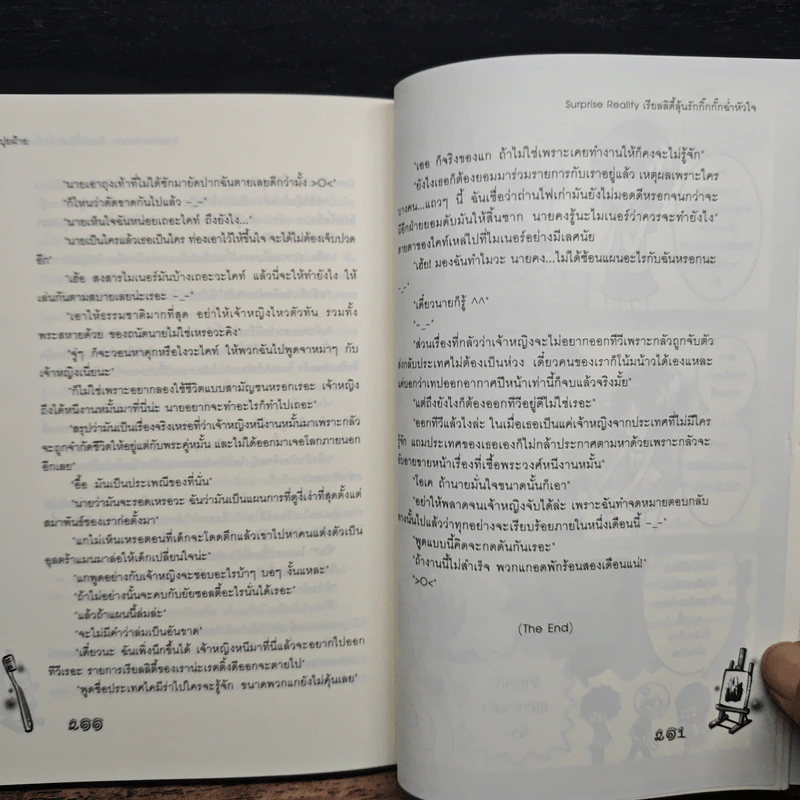 ปุยฝ้าย
"นายเอาถุงเท้าที่ไม่ได้ซักมายัดปากฉันตายเลยดีกว่ามั้ง >O<"
"ก็ไหนว่าตัดขาดกันไปแล้ว -_-"
"นายเห็นใจฉันหน่อยเถอะไคท์ ถึงยังไง..."
"นายเป็นใครแล้วเธอเป็นใคร ท่องเอาไว้ให้ขึ้นใจ จะได้ไม่ต้องเจ็บปวด
อีก"
"เฮ้อ สงสารไมเนอร์มันบ้างเถอะวะไคท์ แล้วนี่จะให้ทำยังไง ให้
เล่นกันตามสบายเลยน่ะเรอะ -_-"
"เอาให้ธรรมชาติมากที่สุด อย่าให้เจ้าหญิงไหวตัวทัน รวมทั้ง
พระสหายด้วย ของถนัดนายไม่ใช่เหรอวะคิง"
"จู่ๆ ก็จะวอนหาคุกหรือไงวะไคท์ ให้พวกฉันไปพูดจาหมาๆ กับ
เจ้าหญิงเนี่ยนะ"
"ก็ไม่ใช่เพราะอยากลองใช้ชีวิตแบบสามัญชนหรอกเรอะ เจ้าหญิง
ถึงได้หนีงานหมั้นมาที่นี่น่ะ นายอยากจะทำอะไรก็ทำไปเถอะ"
"สรุปว่ามันเป็นเรื่องจริงเหรอที่ว่าเจ้าหญิงหนีงานหมั้นมาเพราะกลัว
จะถูกจำกัดชีวิตให้อยู่แต่กับพระคู่หมั้น และไม่ได้ออกมาเจอโลกภายนอก
อีกเลย"
"อื้อ มันเป็นประเพณีของที่นั่น"
"นายว่ามันจะรอดเหรอวะ ฉันว่ามันเป็นแผนการที่ดูงี่เง่าที่สุดตั้งแต่
สมาพันธ์ของเราก่อตั้งมา"
"แกไม่เห็นเหรอตอนที่เด็กจะโดดตึกแล้วเขาไปหาคนแต่งตัวเป็น
อุลตร้าแมนมาล่อให้เด็กเปลี่ยนใจน่ะ"
"แกพูดอย่างกับเจ้าหญิงจะชอบอะไรบ้าๆ บอๆ งั้นแหละ"
"ถ้าไม่อย่างนั้นจะคบกับยัยซอลตี้อะไรนั่นได้เรอะ"
"แล้วถ้าแผนนี้ล่มล่ะ"
"จะไม่มีคำว่าล่มเป็นอันขาด"
"เดี๋ยวนะ ฉันเพิ่งนึกขึ้นได้ เจ้าหญิงหนีมาที่นี่แล้วจะอยากไปออก
ทีวีเรอะ รายการเรียลลิตี้ของเราน่ะเรตติ้งดีออกจะตายไป"
"พูดชื่อประเทศไคมีร่าไปใครจะรู้จัก ขนาดพวกแกยังไม่คุ้นเลย"
200
Surprise Reality เรียลลิตี้ลุ้นรักกิ๊กกั๊กฉ่ำหัวใจ
"เออ ก็จริงของแก ถ้าไม่ใช่เพราะเคยทำงานให้ก็คงจะไม่รู้จัก"
"ยังไงเธอก็ต้องยอมมาร่วมรายการกับเราอยู่แล้ว เหตุผลเพราะใคร
บางคน...แถวๆ นี้ ฉันเชื่อว่าถ่านไฟเก่ามันยังไม่มอดดีหรอกจนกว่าจะ
มีอีกฝ่ายยอมดับมันให้สิ้นซาก นายคงรู้นะไมเนอร์ว่าควรจะทำยังไง"
สายตาของไคท์เหล่ไปที่ไมเนอร์อย่างมีเลศนัย
"เฮ้ย! มองฉันทำไมวะ นายคง...ไม่ได้ซ้อนแผนอะไรกับฉันหรอกนะ
-_-"
"เดี๋ยวนายก็รู้ ^^"
"-_-"
"ส่วนเรื่องที่กลัวว่าเจ้าหญิงจะไม่อยากออกทีวีเพราะกลัวถูกจับตัว
ส่งกลับประเทศไม่ต้องเป็นห่วง เดี๋ยวคนของเราก็โน้มน้าวได้เองแหละ
แค่บอกว่าเทปออกอากาศปีหน้าเท่านี้ก็จบแล้วจริงมั้ย"
"แต่ถึงยังไงก็ต้องออกทีวีอยู่ดีไม่ใช่เรอะ"
"ออกทีวีแล้วไงล่ะ ในเมื่อเธอเป็นแค่เจ้าหญิงจากประเทศที่ไม่มีใคร
รู้จัก แถมประเทศของเธอเองก็ไม่กล้าประกาศตามหาด้วยเพราะกลัวจะ
อับอายขายหน้าเรื่องที่เชื้อพระวงศ์หนีงานหมั้น"
"โอเค ถ้านายมั่นใจขนาดนั้นก็เอา"
"อย่าให้พลาดจนเจ้าหญิงจับได้ล่ะ เพราะฉันทำจดหมายตอบกลับ
ทางนั้นไปแล้วว่าทุกอย่างจะเรียบร้อยภายในหนึ่งเดือนนี้ -_-"
"พูดแบบนี้คิดจะกดดันกันเรอะ"
"ถ้างานนี้ไม่สำเร็จ พวกแกอดพักร้อนสองเดือนแน่!"
">O<"
(The End)
201